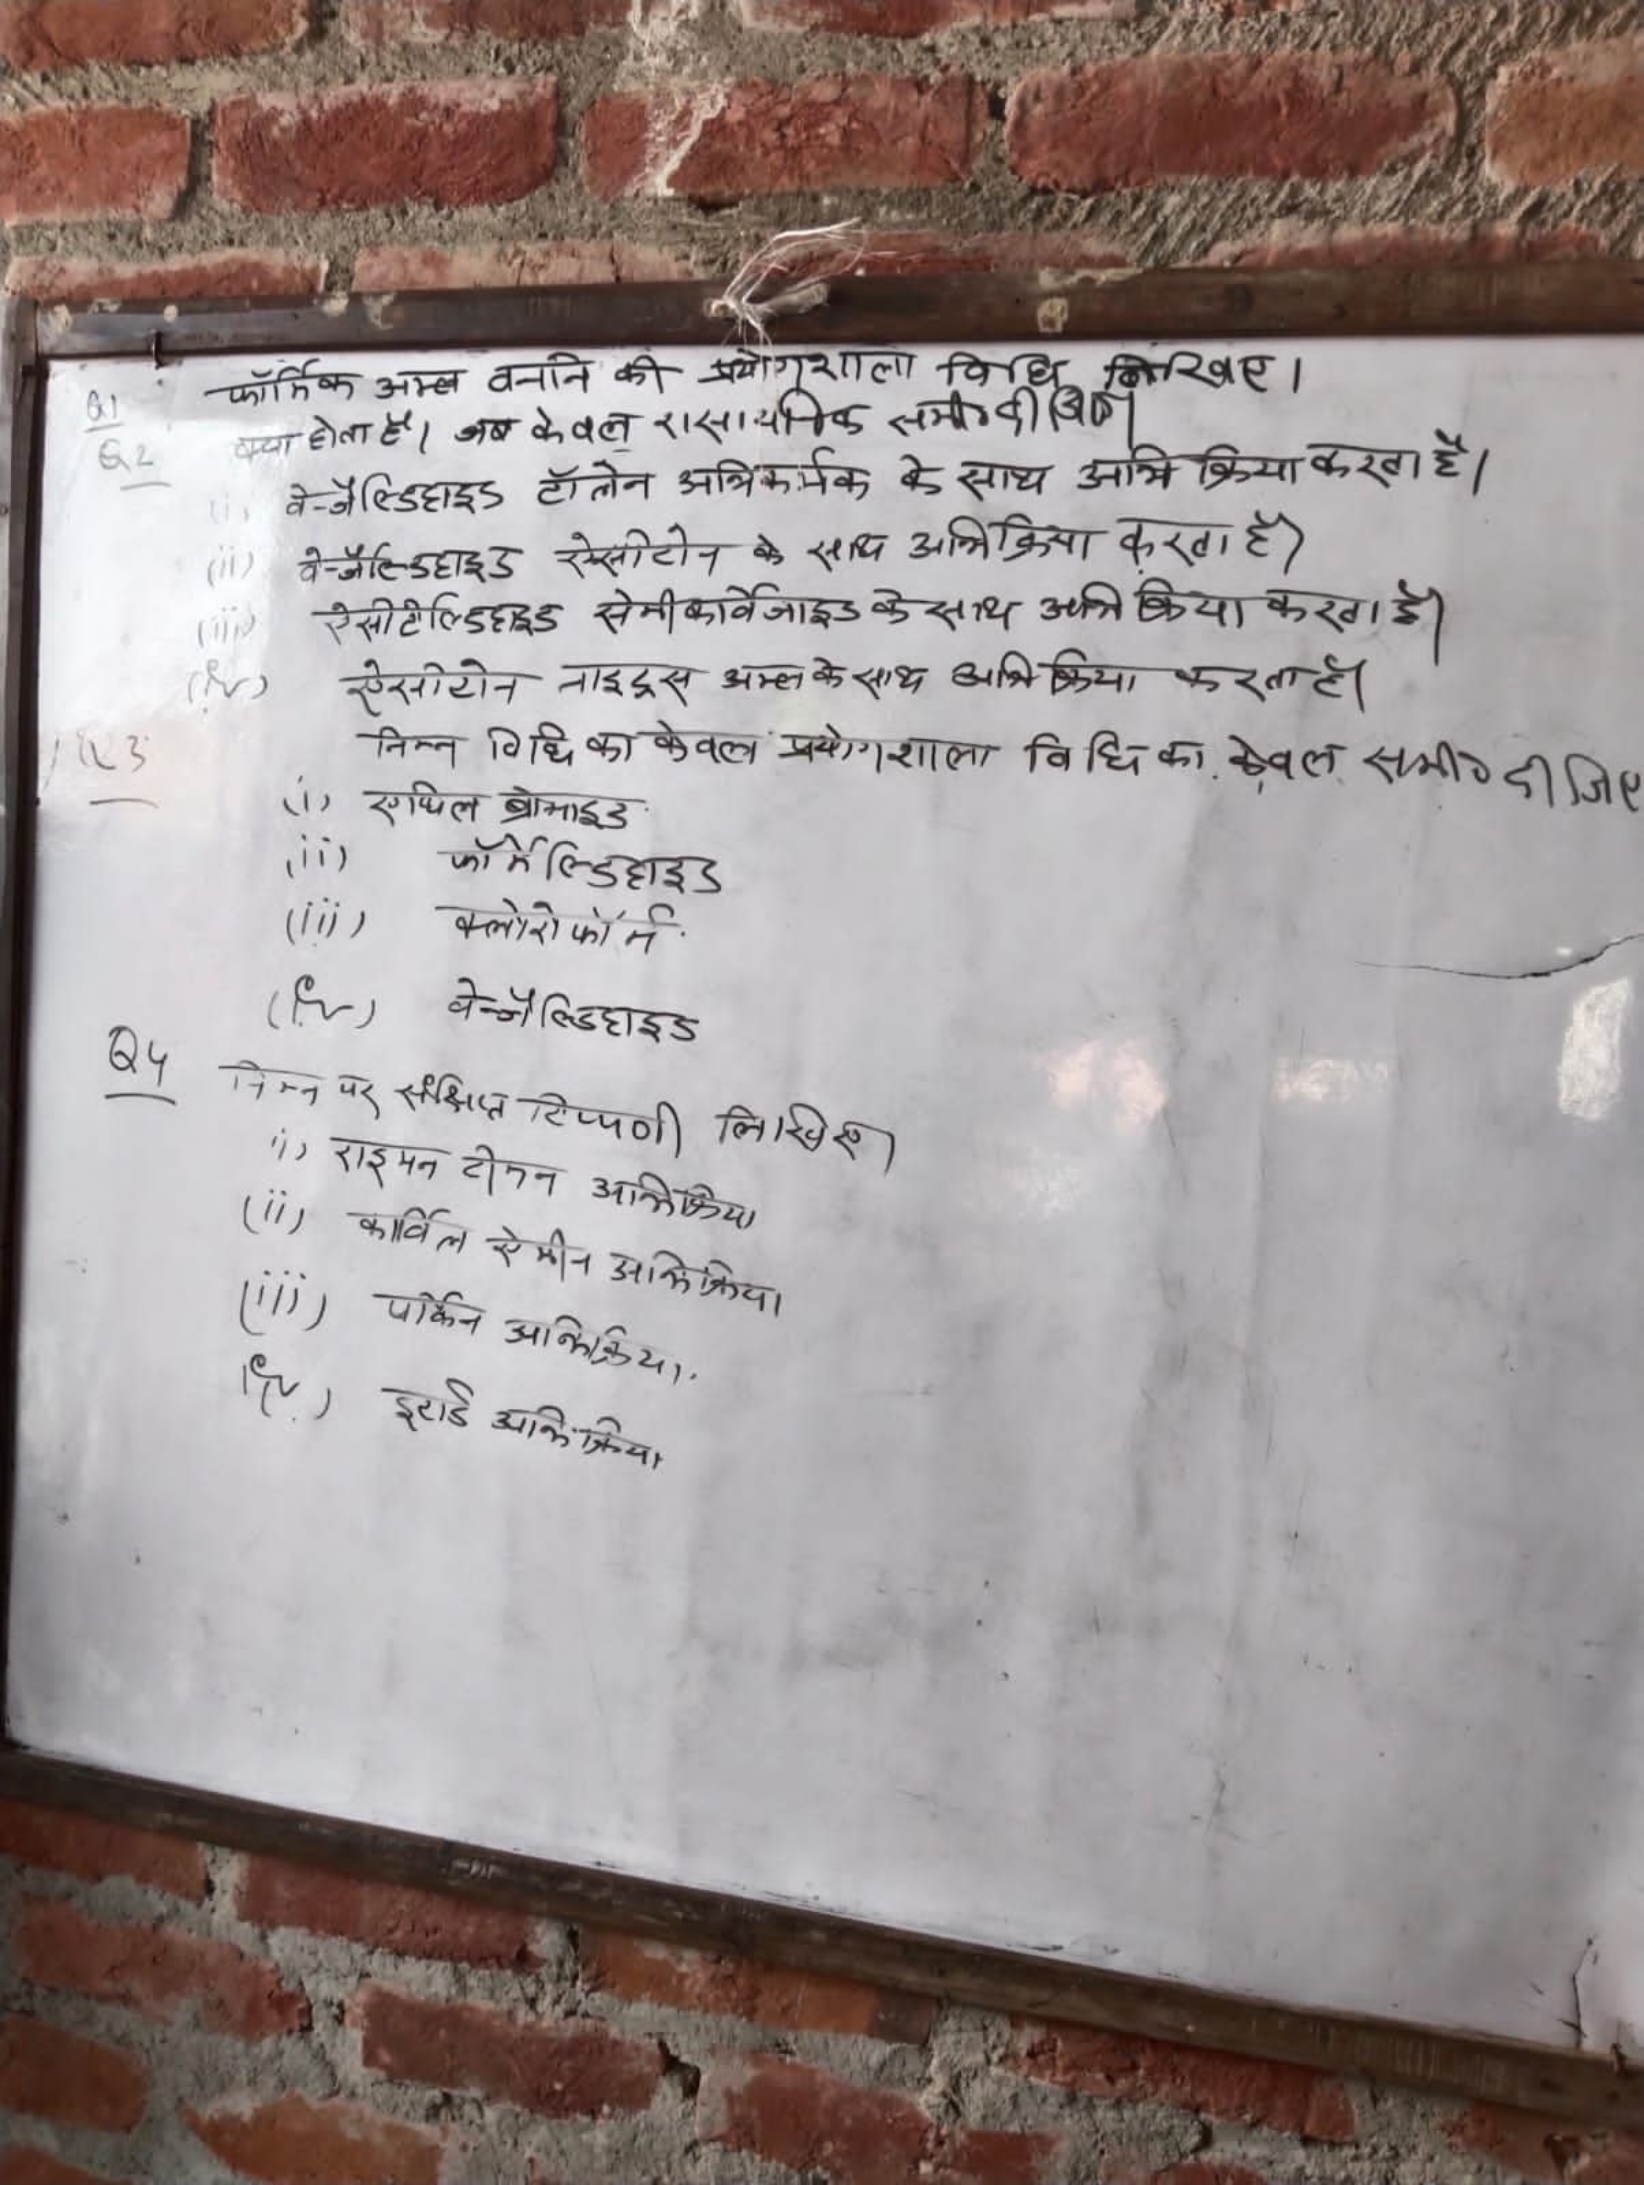 Q1 फॉर्मिक अम्ल बनाने की प्रयोगशाला विधि लिखिए।
Q2 क्या होता है। जब केवल रासायनिक समी० दीजिए।
(i) वेन्जैल्डिहाइड टॉलेन अभिकर्मक के साथ अभिक्रिया करता है।
(ii) वेन्जैल्डिहाइड ऐसीटोन के साथ अभिक्रिया करता है।
(iii) ऐसीटैल्डिहाइड सेमीकार्वेजाइड के साथ अभिक्रिया करता है।
(iv) ऐसीटोन नाइट्रस अम्ल के साथ अभिक्रिया करता है।
Q3 निम्न विधि का केवल प्रयोगशाला विधि का केवल समी० दीजिए
(i) एथिल ब्रोमाइड
(ii) फॉर्मेल्डिहाइड
(iii) क्लोरोफॉर्म
(iv) वेन्जैल्डिहाइड
Q4 निम्न पर संक्षिप्त टिप्पणी लिखिए।
i) राइमन टीमन अभिक्रिया
(ii) कार्विल ऐमीन अभिक्रिया
(iii) पर्किन अभिक्रिया.
(iv) इटार्ड अभिक्रिया